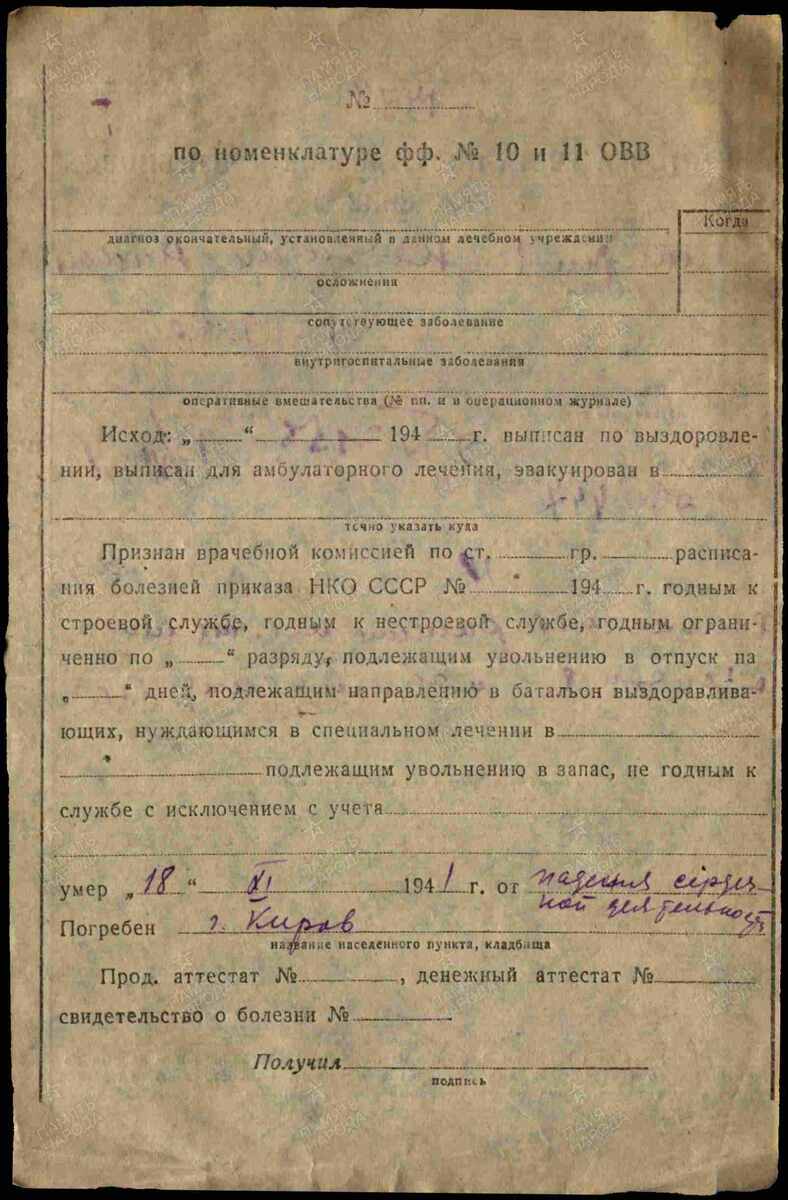 №
по номенклатуре фф. № 10 и 11 ОВВ
Когда
диагноз окончательный, установленный в данном лечебном учреждении
осложнения
сопутствующее заболевание
внутригоспитальные заболевания
оперативные вмешательства (№ пп. и в операционном журнале)
Исход: „ “ 194 г. выписан по выздоровле-
нии, выписан для амбулаторного лечения, эвакуирован в
точно указать куда
Признан врачебной комиссией по ст. гр. расписа-
ния болезней приказа НКО СССР № 194 г. годным к
строевой службе, годным к нестроевой службе, годным ограни-
ченно по „ “ разряду, подлежащим увольнению в отпуск на
„ “ дней, подлежащим направлению в батальон выздоравлива-
ющих, нуждающимся в специальном лечении в
подлежащим увольнению в запас, не годным к
службе с исключением с учета
умер „18“ XI 1941 г. от падения сердеч-
ной деятельности
Погребен г. Киров
название населенного пункта, кладбища
Прод. аттестат № , денежный аттестат №
свидетельство о болезни №
Получил
подпись
ПАМЯТЬ НАРОДА